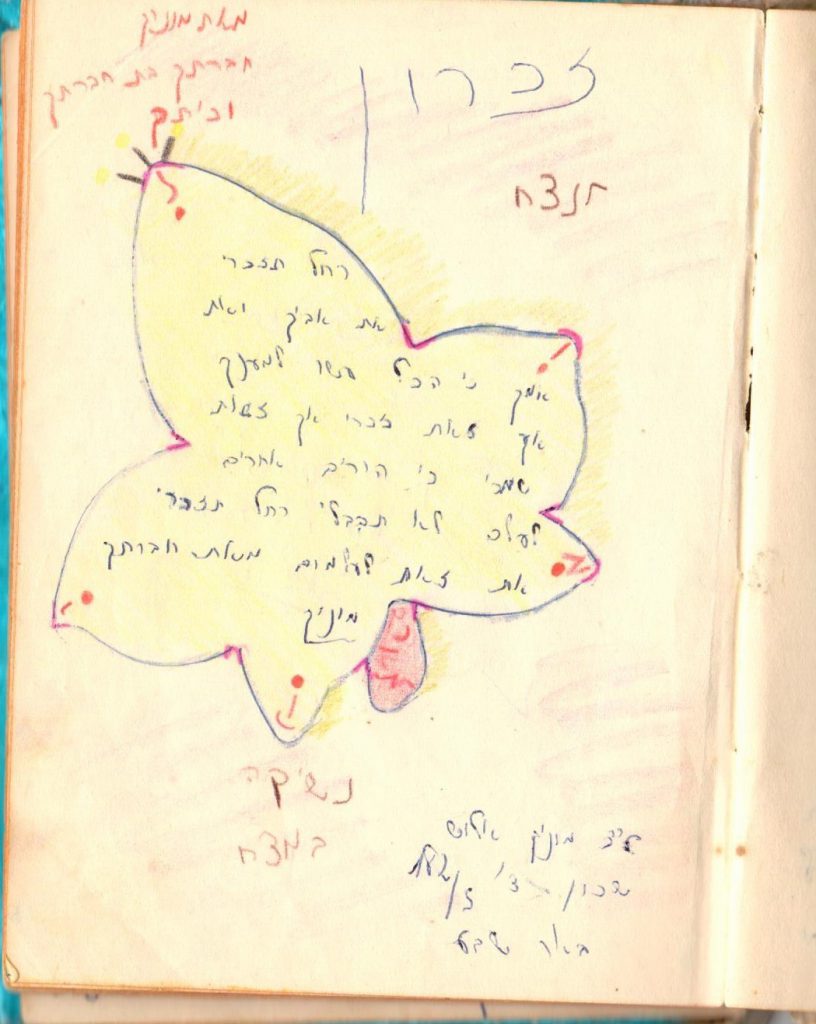 מאת מוניק
חברתך בת חברתך
וכיתתך
זכרון
תנצח
רחל תזכרי
את אביך ואת
אמך כי הכל עשו למענך
אך זאת זכרי אך זאת
שמרי כי הורים אחרים
לעולם לא תקבלי רחל תזכרי
את זאת לעולמים מאת חברתך
מוניק
נשיקה
במצח
מוניק אלוש
שכון
באר שבע